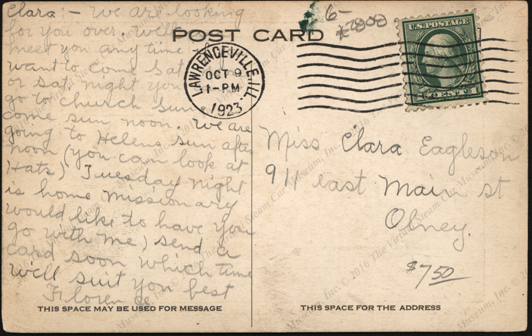 Clara:- We are looking
for you over. We'll
meet you any time
want to come Sat
or Sat. night you
go to church Sun
come sun noon. We are
going to Helens Sun after
noon (you can look at
Hats) Tuesday night
is home missionary
would like to have you
go with me) send a
card soon which time
we'll suit you best
Florence
THIS SPACE MAY BE USED FOR MESSAGE
POST CARD
LAWRENCEVILLE, ILL.
OCT 9
1-PM
1923
6-
U.S. POSTAGE
Miss Clara Eagleson
911 east Main st
Olney.
$7.50
THIS SPACE FOR THE ADDRESS